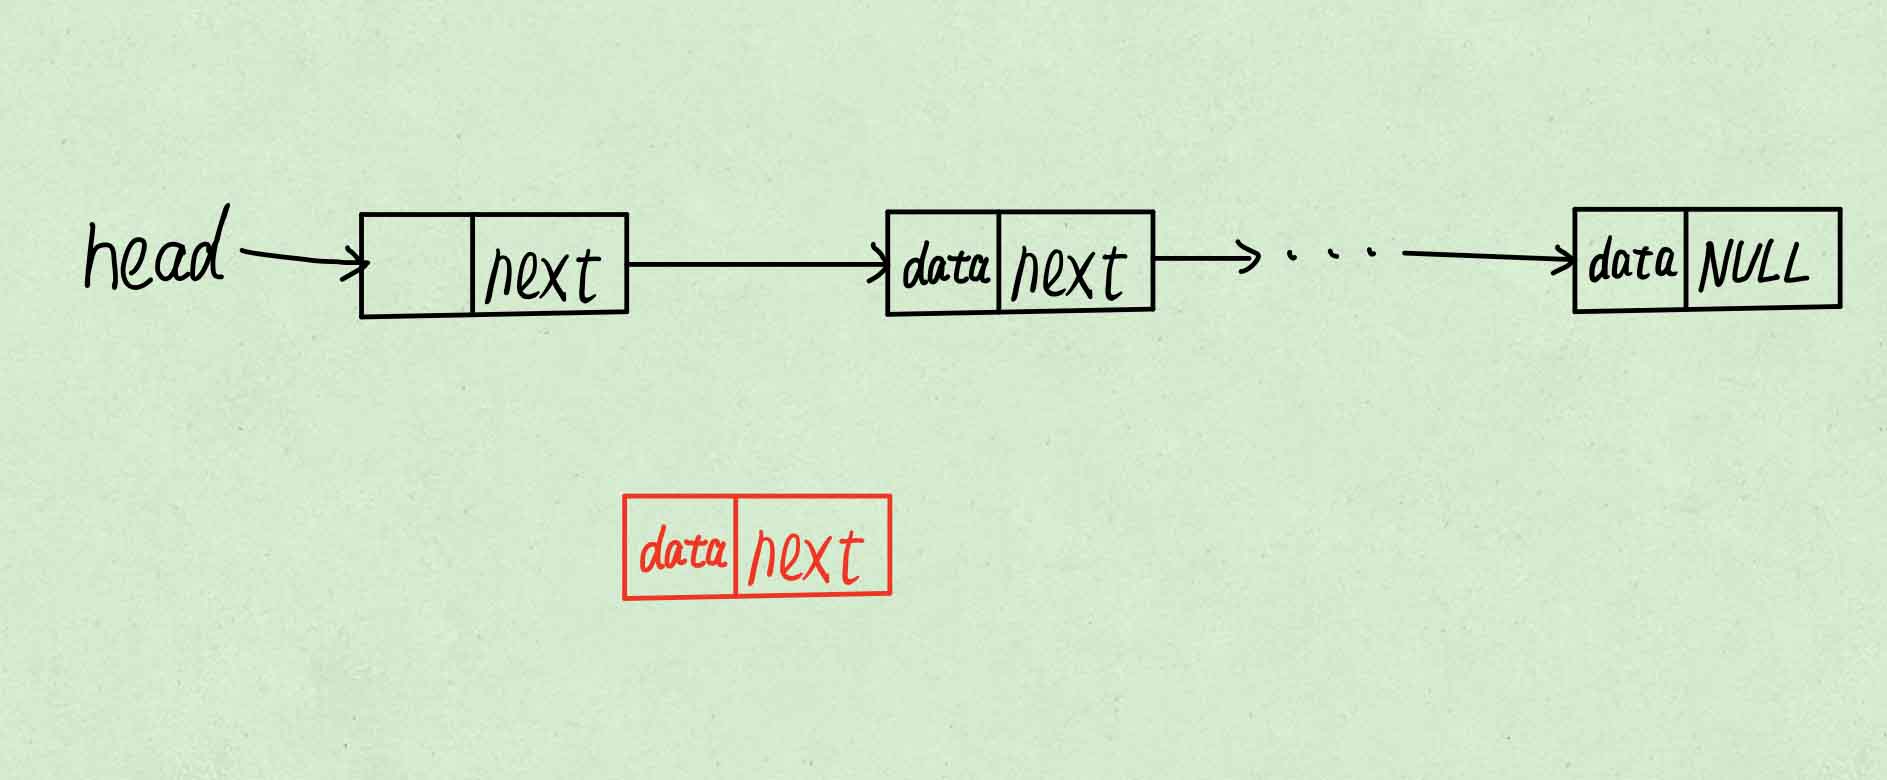 head next data next ... data NULL
data next